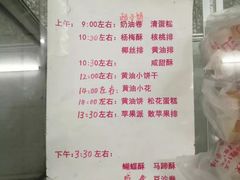 上午: 9:00左右: 奶油卷 清蛋糕
10:30左右: 杨梅酥 核桃排
椰丝排 黄油排
10:30左右: 咸甜酥
12:00左右: 黄油小饼干
14:00左右: 黄油小花
18:00左右: 黄油饼 松花蛋糕
13:30左右: 苹果派 散苹果排
下午: 3:30左右:
蝴蝶酥 马蹄酥